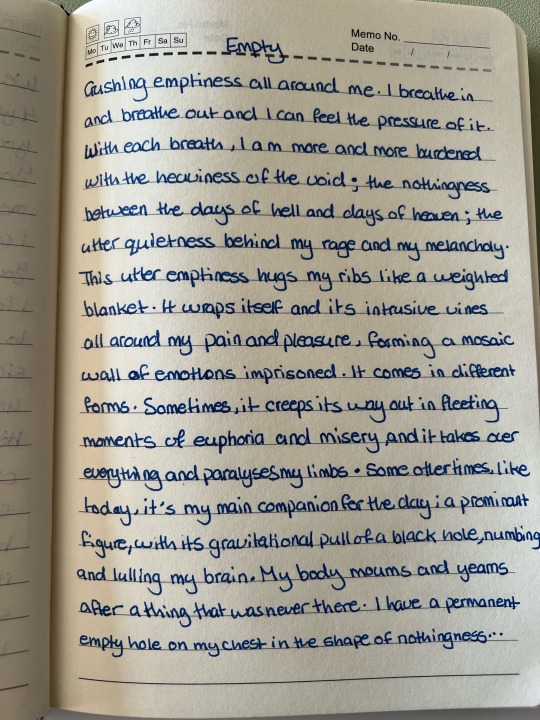 Mo Tu We Th Fr Sa Su
Empty
Memo No.
Date / /
Gushing emptiness all around me. I breathe in
and breathe out and I can feel the pressure of it.
With each breath, I am more and more burdened
with the heaviness of the void; the nothingness
between the days of hell and days of heaven; the
utter quietness behind my rage and my melancholy.
This utter emptiness hugs my ribs like a weighted
blanket. It wraps itself and its intrusive vines
all around my pain and pleasure, forming a mosaic
wall of emotions imprisoned. It comes in different
forms. Sometimes, it creeps its way out in fleeting
moments of euphoria and misery and it takes over
everything and paralyses my limbs. Some other times, like
today, it's my main companion for the day; a prominant
figure, with its gravitational pull of a black hole, numbing
and lulling my brain. My body mourns and yearns
after a thing that was never there. I have a permanent
empty hole on my chest in the shape of nothingness...